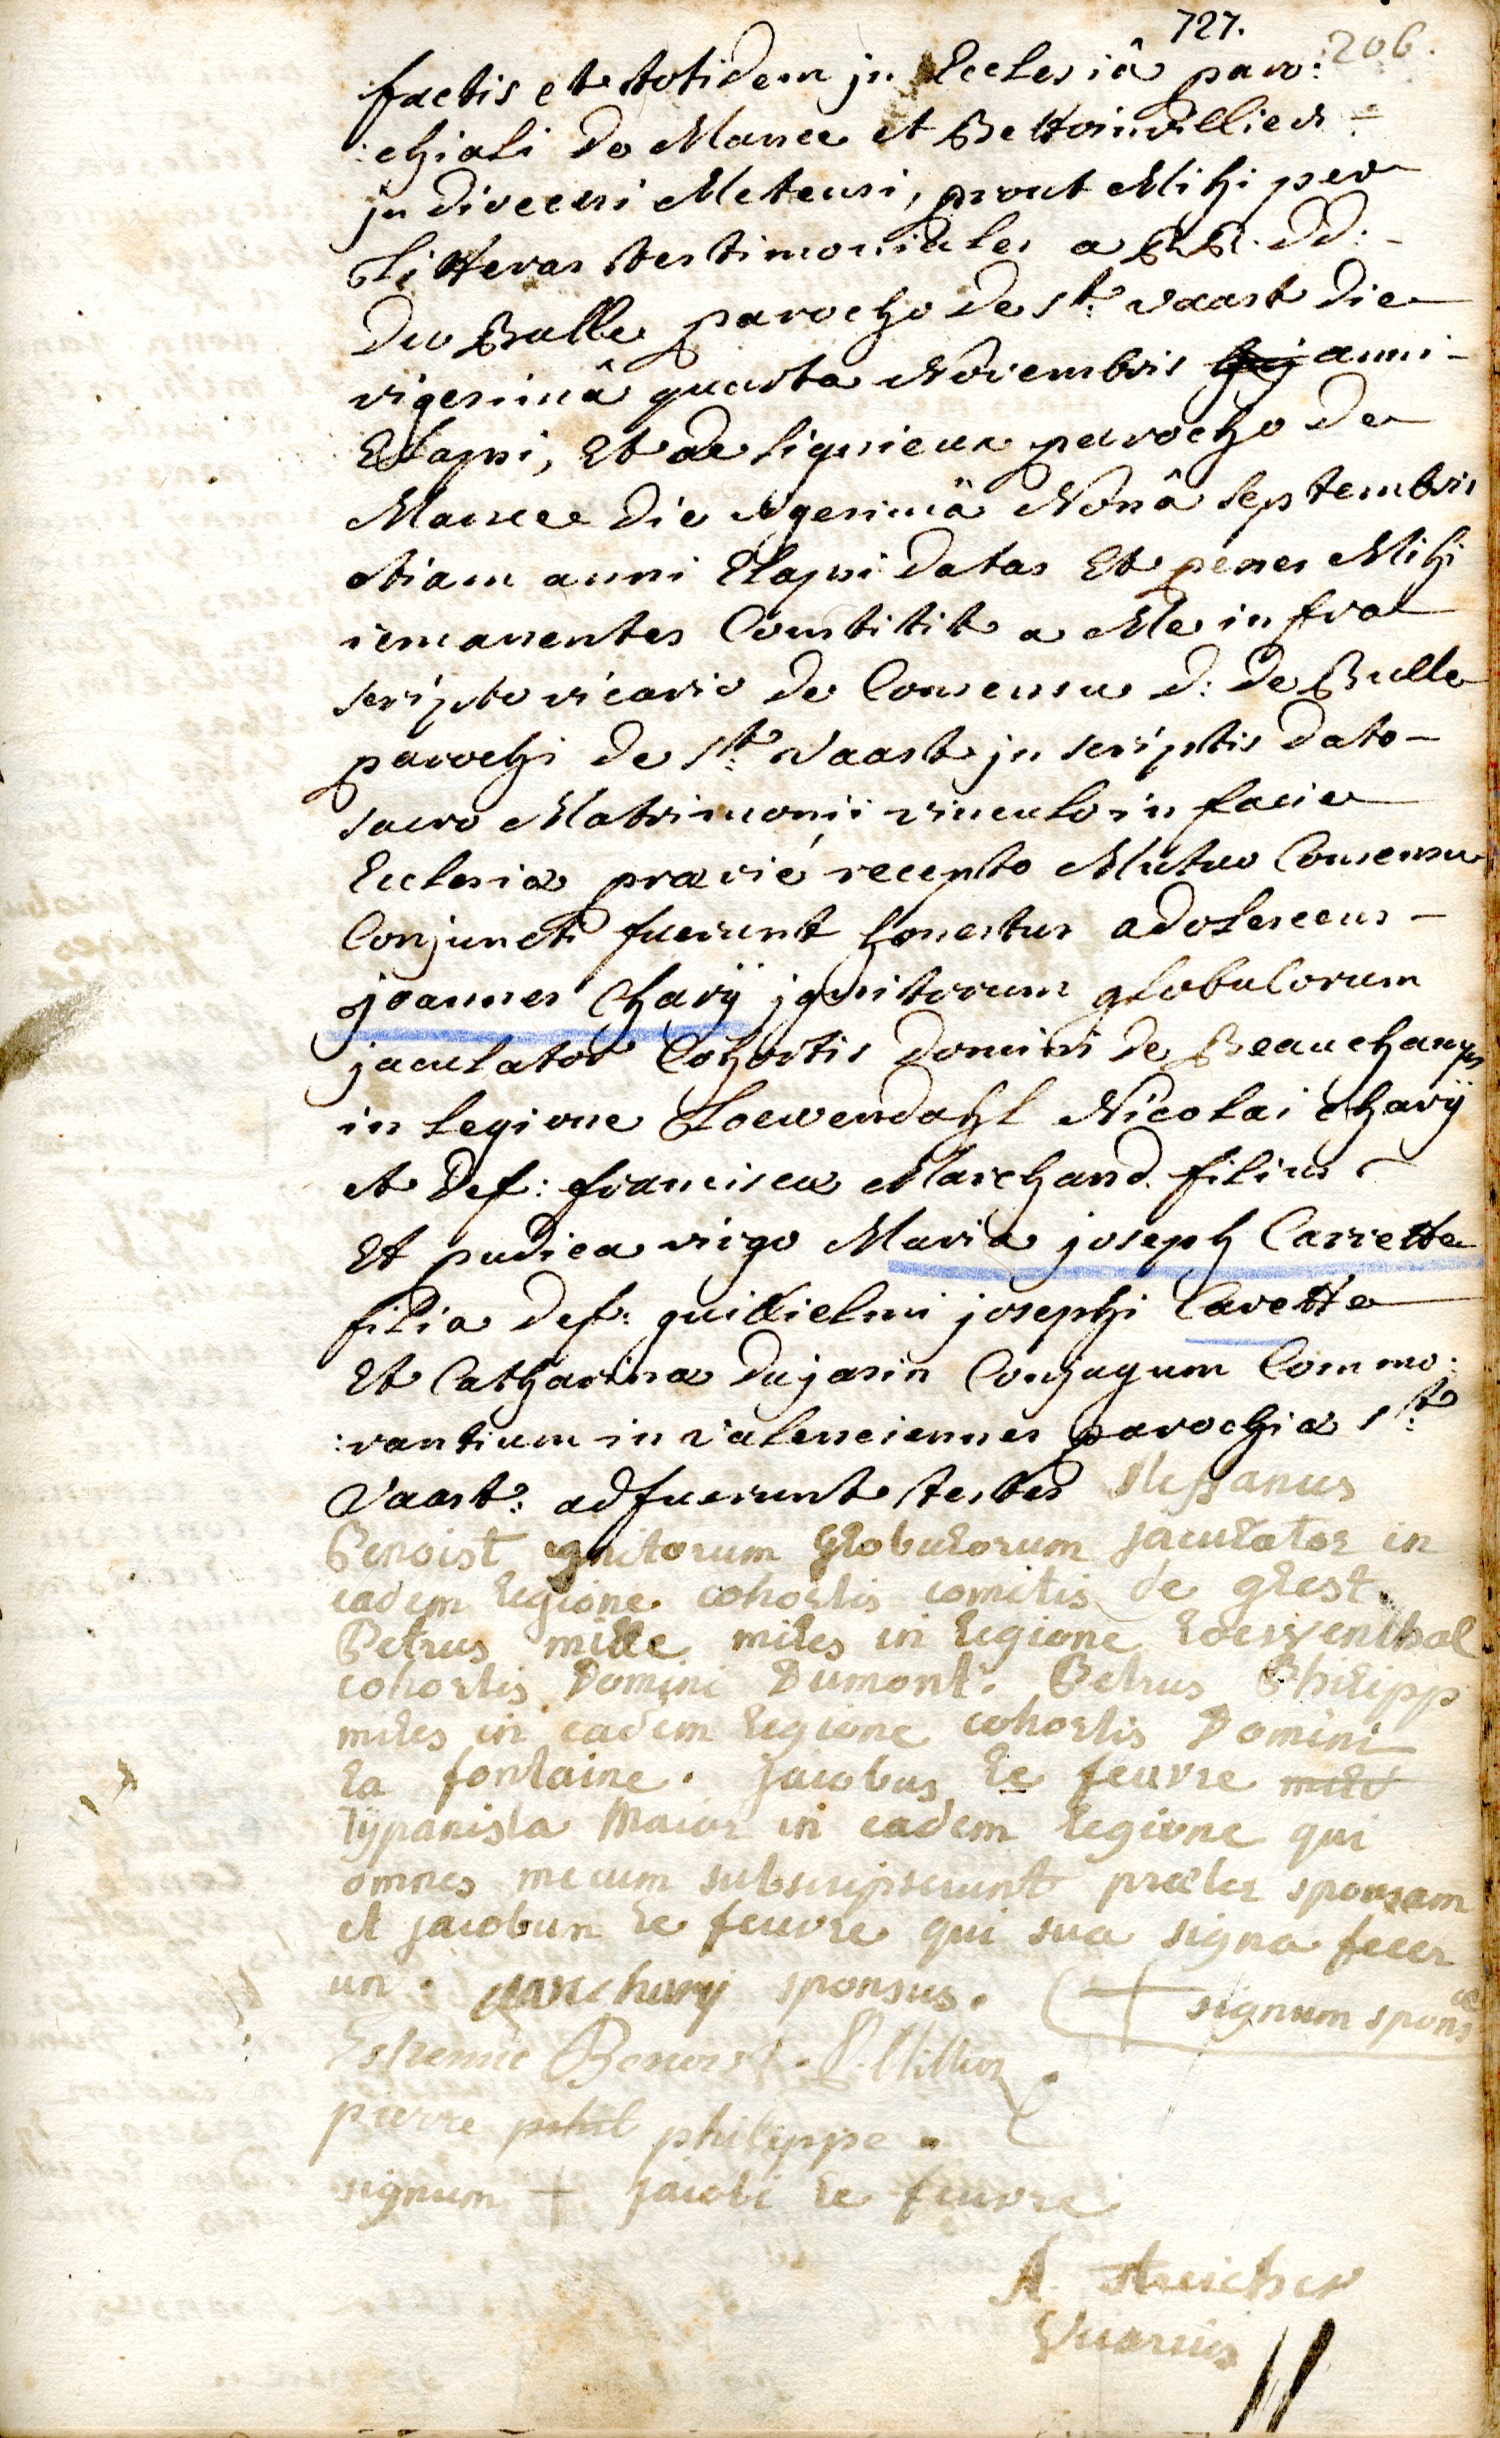 727.
206.
factis et totidem in Ecclesiâ paro:
:chiali de Mance et Bettainvillier =
in dioecesi Metensi, prout Mihi per
Litteras testimoniales a RR. dd: -
du Bulle parocho de st: vaast die
vigesimâ quarta Novembris huj anni -
Elapsi, Et de Lignieux parocho de
Mance die vigesimâ Nonâ septembris
etiam anni Elapsi datas Et penes Mihi
remanentes Constitit a Me infra
scripto vicario de Consensu d: de Bulle
parochi de st: Vaast in scriptis dato -
sacro Matrimonii vinculo in facie
Ecclesiæ prævie recepto Mutuo Consensu
Conjuncti fuerunt honestus adolescens -
joannes Charÿ ignitorum globulorum
jaculator Cohortis domini de Beauchamps
in Legione Loewendahl Nicolai Charÿ
et def: franciscæ Marchand filius
Et pudica virgo Maria joseph Carrette
filia def: guillielmi josephi Carette
Et Catharinæ dujasin Conjugum Commo:
:rantium in valenciennes parochiæ st:
Vaast: adfuerunt testes stephanus
Benoist ignitorum Globulorum jaculator in
eadem legione cohortis comitis de glest
Petrus mille miles in legione Loewenthal
cohortis Domini Dumont. Petrus Philipp
miles in eadem legione cohortis Domini
la fontaine. jacobus le feuvre mile
Tÿpanista Maior in eadem legione qui
omnes mecum subscripserunt præter sponsam
et jacobum le feuvre qui sua signa fecer
un. Jan chary sponsus. + signum sponsæ
Estienne Benoist. P. Millier
pierre phil philippe.
signum + jacobi le feuvre
A. streicher
Vicarius